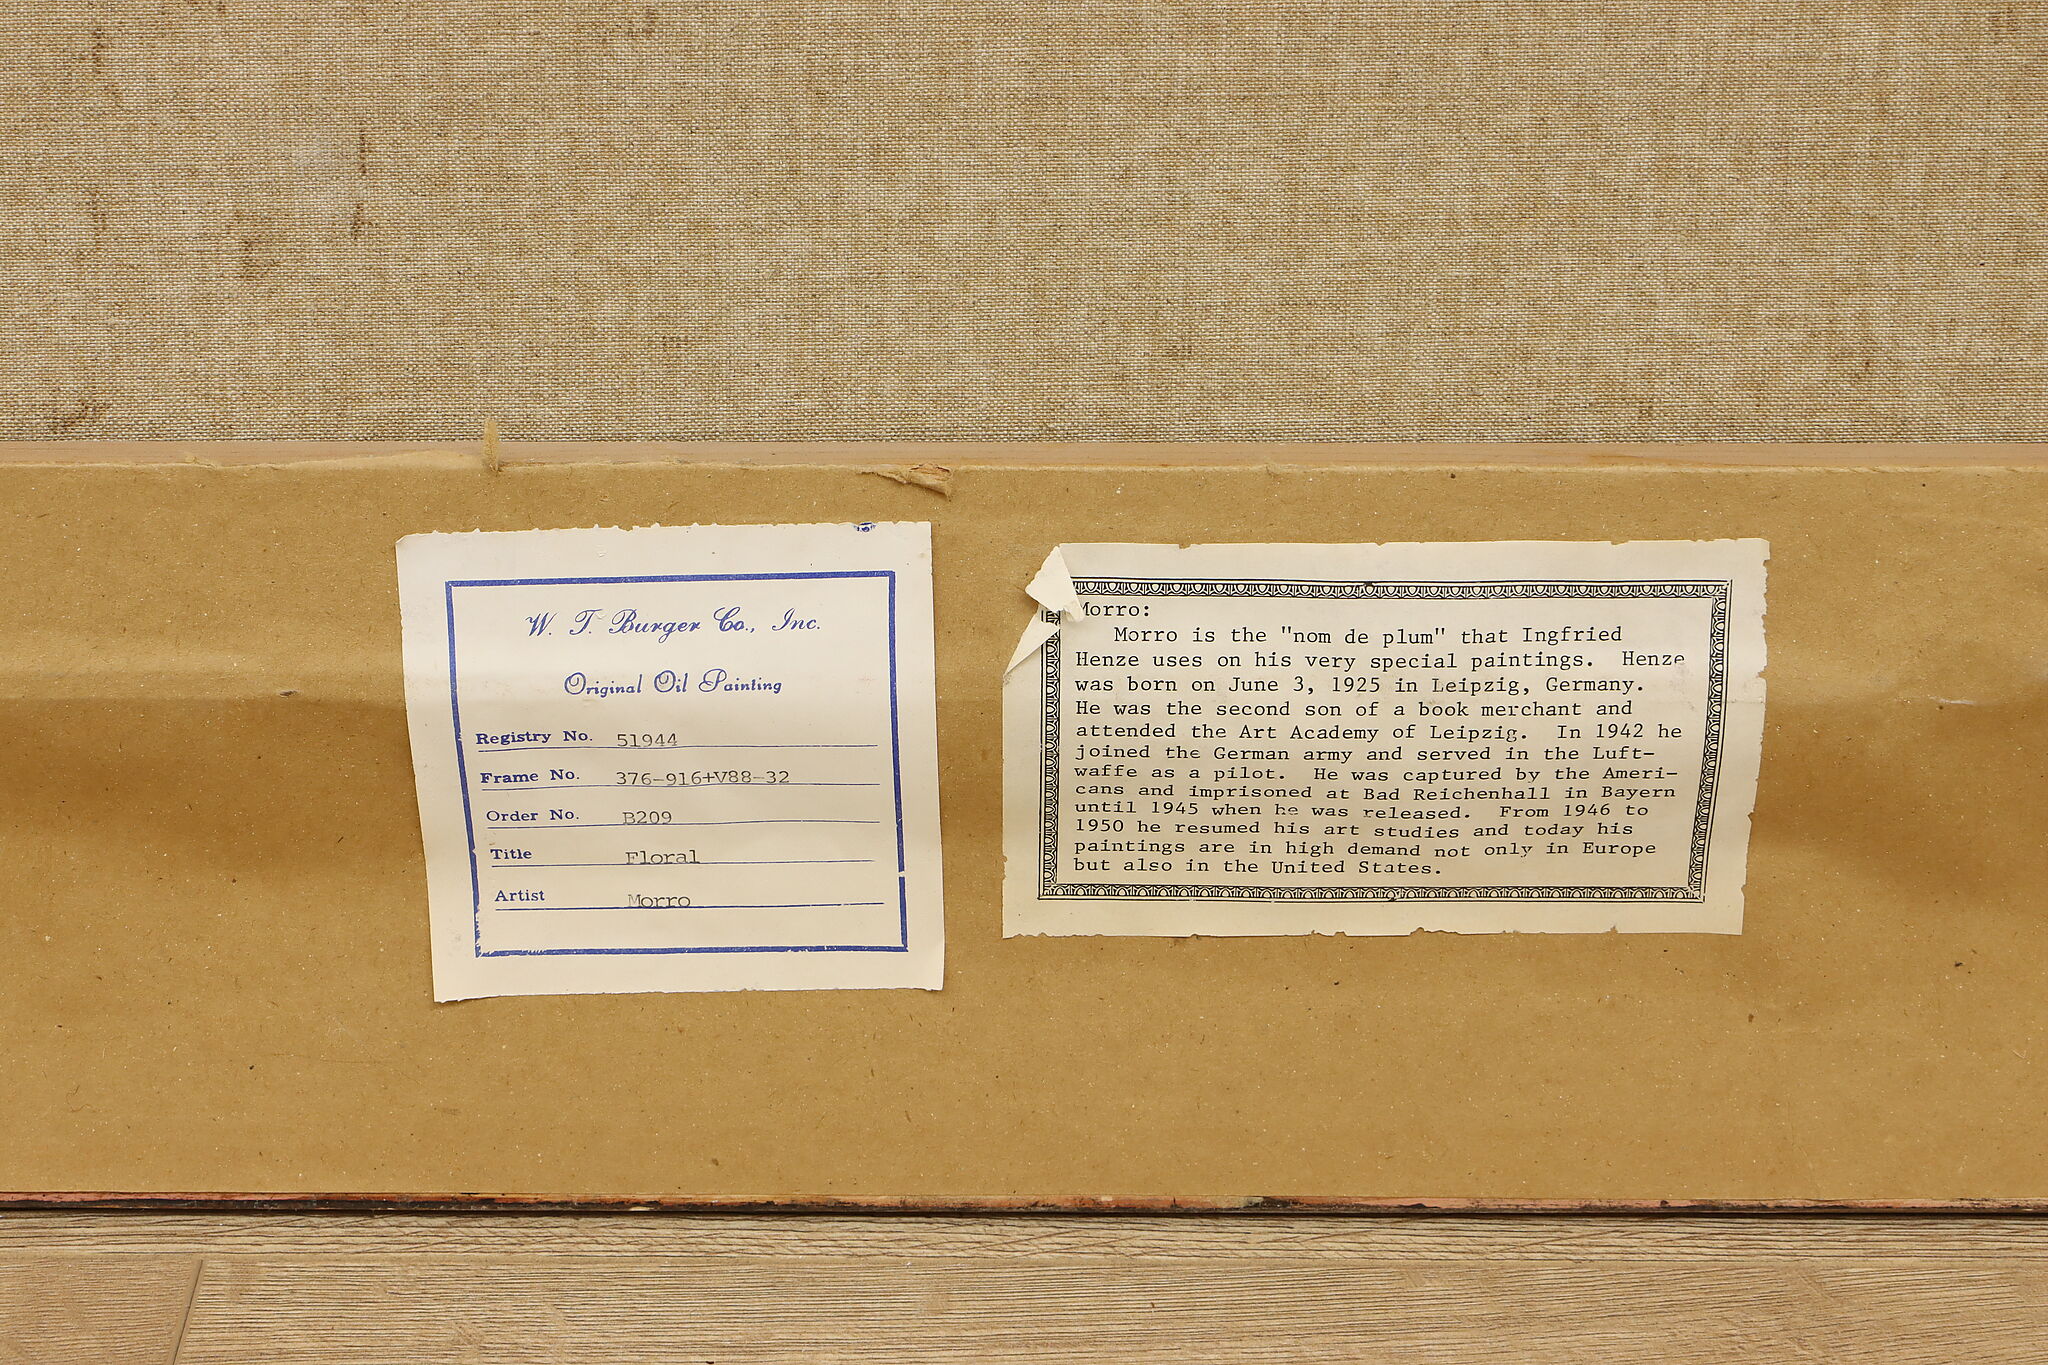 W. T. Burger Co., Inc.
Original Oil Painting
Registry No. 51944
Frame No. 376-916+V88-32
Order No. B209
Title Floral
Artist Morro
Morro:
Morro is the "nom de plum" that Ingfried
Henze uses on his very special paintings. Henze
was born on June 3, 1925 in Leipzig, Germany.
He was the second son of a book merchant and
attended the Art Academy of Leipzig. In 1942 he
joined the German army and served in the Luft-
waffe as a pilot. He was captured by the Ameri-
cans and imprisoned at Bad Reichenhall in Bayern
until 1945 when he was released. From 1946 to
1950 he resumed his art studies and today his
paintings are in high demand not only in Europe
but also in the United States.